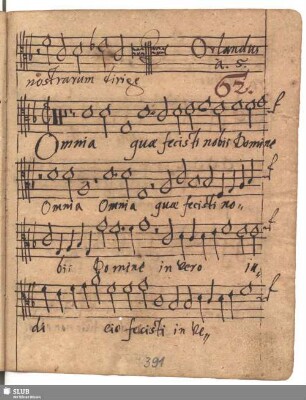 Orlandus
nostrarum dirige
a. 5.
62.
Omnia quæ fecisti nobis Domine
Omnia Omnia quæ fecisti no„
bis Domine in vero in„
di cio fecisti in ve„
391
SLUB